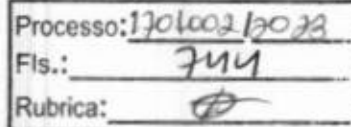 Processo: 1701002/2023
Fls.: 744
Rubrica: